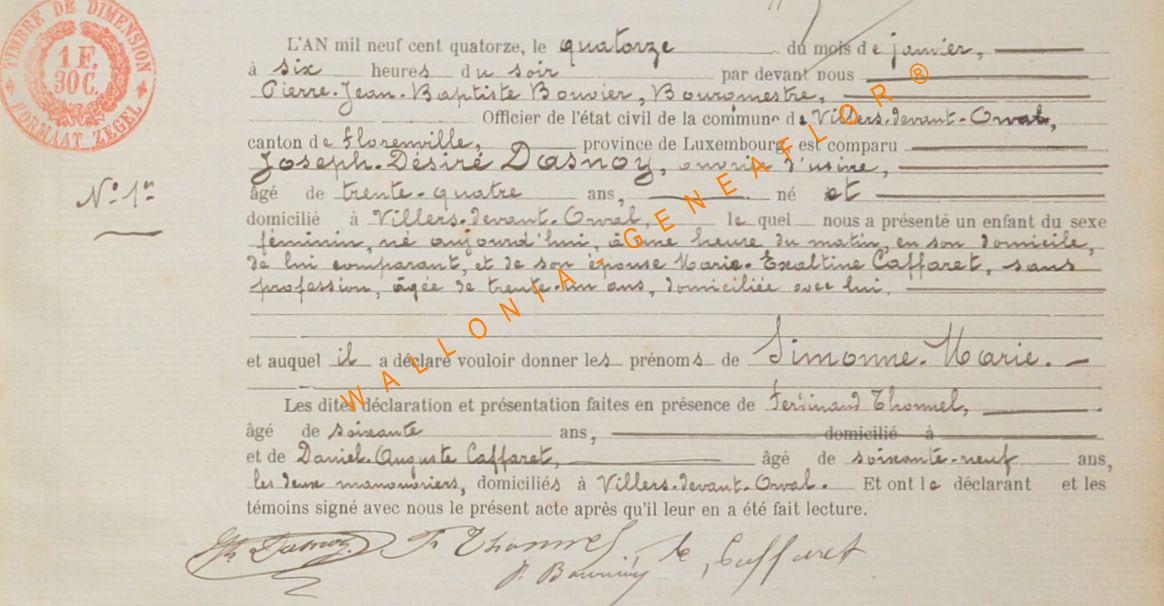 TIMBRE DE DIMENSION
1 F.
30 C.
FORMAAT ZEGEL
L'AN mil neuf cent quatorze, le quatorze du mois de janvier,
à six heures du soir par devant nous
Pierre-Jean-Baptiste Bouvier, Bourgmestre,
Officier de l'état civil de la commune de Villers-devant-Orval,
canton de Florenville, province de Luxembourg, est comparu
Joseph-Désiré Dasnoy, ouvrier d'usine,
N° 1er
âgé de trente-quatre ans, né et
domicilié à Villers-devant-Orval, le quel nous a présenté un enfant du sexe
féminin, né aujourd'hui, à une heure du matin, en son domicile,
de lui comparant, et de son épouse Marie-Exaltine Caffaret, sans
profession, âgée de trente-un ans, domiciliée avec lui.
et auquel il a déclaré vouloir donner les prénoms de Simonne-Marie.
Les dites déclaration et présentation faites en présence de Ferdinand Thonnel,
âgé de soixante ans, domicilié à
et de Daniel-Auguste Caffaret, âgé de soixante-neuf ans,
les deux manouvriers, domiciliés à Villers-devant-Orval. Et ont le déclarant et les
témoins signé avec nous le présent acte après qu'il leur en a été fait lecture.
Dasnoy F Thonnel Caffaret
WALLONIA-GENEAFLOR®